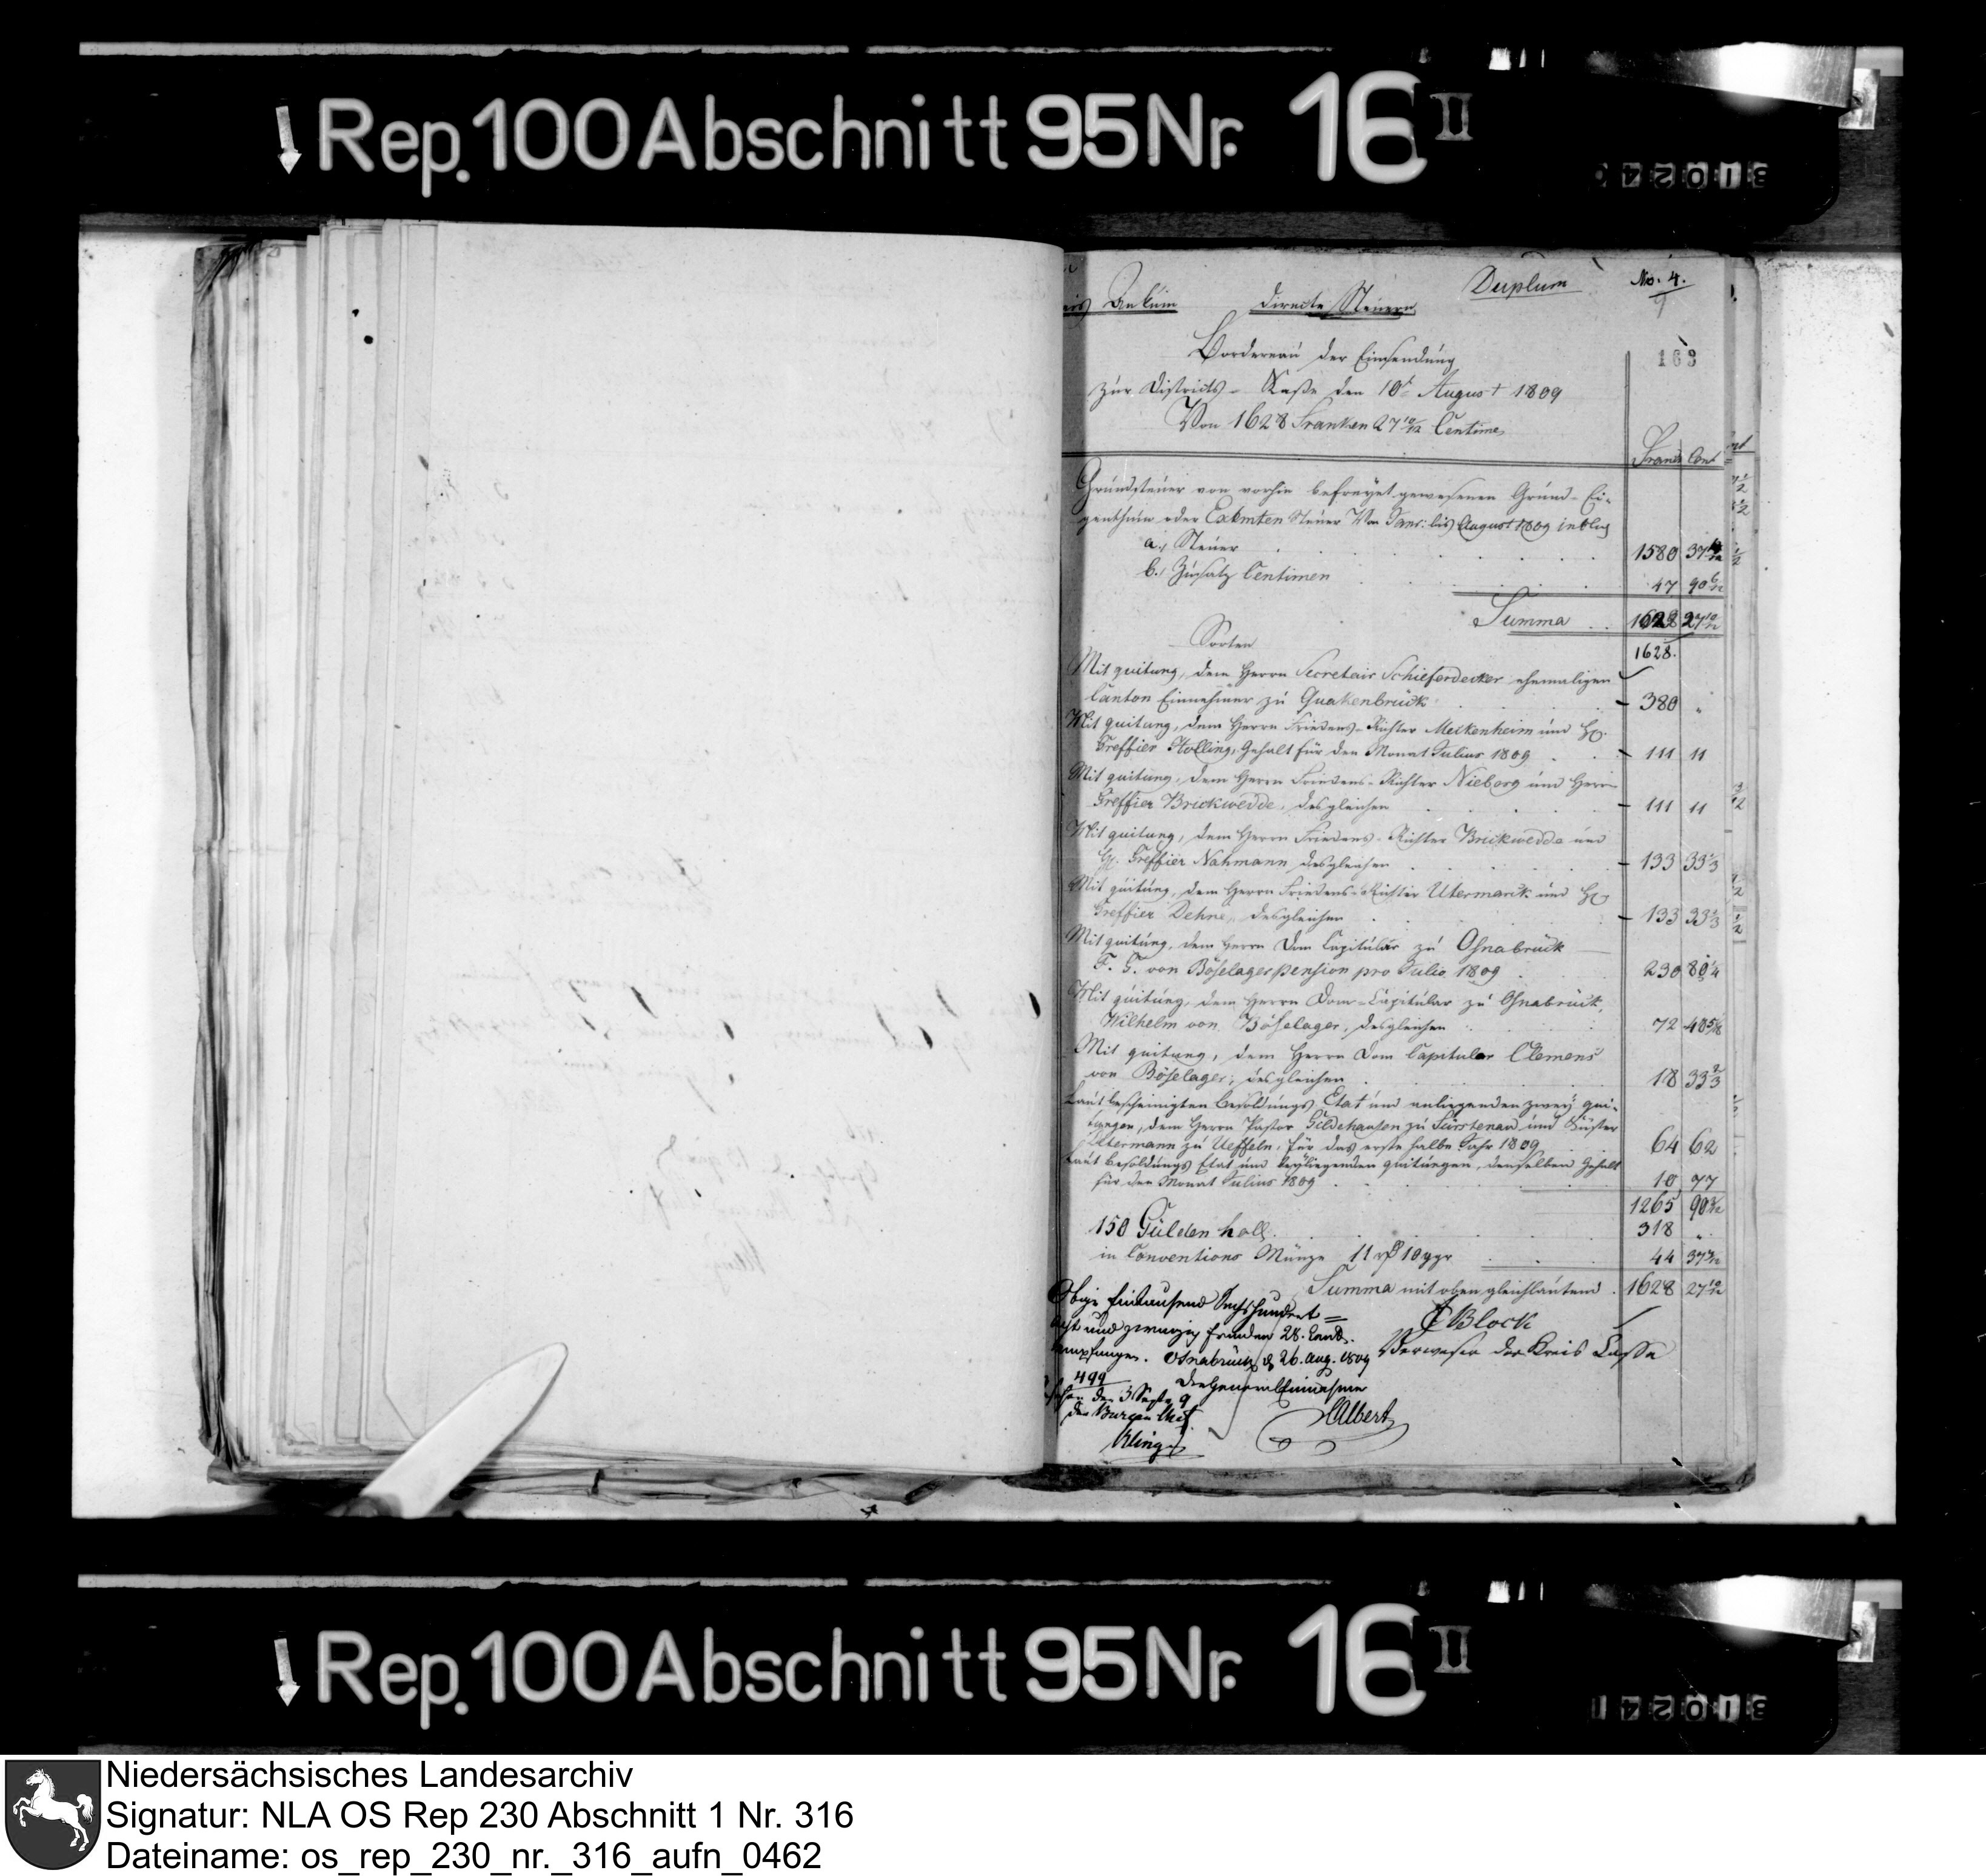 Rep. 100 Abschnitt 95 Nr. 16 II
Duplum No. 4.
Ankum directe Steuern
163
Bordereau der Einsendung
zur Districts-Kasse den 10t August 1809
Von 1628 Franken 27 10/12 Centimen
Franc Cent
Grundsteuer von vorhin befreyet gewesenen Grund-Ei-
genthum oder Exemten Steuer Von Janr: bis August 1809 inclus
a., Steuer 1580 37 4/12
b., Zusatz Centimen 47 90 6/12
Summa 1628 27 10/12
1628.
Sorten
Mit quitung, dem Herrn Secretair Schieferdecker ehemaligen
Canton Einnehmer zu Quakenbrück 380 "
Mit quitung, dem Herrn Friedens-Richter Meckenheim und H.
Greffier Holling, Gehalt für den Monat Julius 1809 111 11
Mit quitung, dem Herrn Friedens-Richter Nieberg und Herrn
Greffier Brickwedde, desgleichen 111 11
Mit quitung, dem Herrn Friedens-Richter Brickwedde und
H. Greffier Nahmann, desgleichen 133 33 1/3
Mit quitung, dem Herrn Friedens-Richter Utermarck und H.
Greffier Dehne, desgleichen 133 33 1/3
Mit quitung, dem Herrn Dom Capitular zu Osnabrück
F. G. von Böselager pension pro Julio 1809 230 80 1/4
Mit quitung, dem Herrn Dom-Capitular zu Osnabrück,
Wilhelm von Böselager, desgleichen 72
Mit quitung, dem Herrn Dom Capitular Clemens
von Böselager, desgleichen 18 33 2/3
Laut bescheinigten Besoldungs Etat und anliegenden zwey qui-
tungen, dem Herrn Pastor Gildehausen zu Fürstenau und Küster
Oltermann zu Ueffeln, für das erste halbe Jahr 1809 64 62
Laut Besoldungs Etat und beyliegenden quitungen, denselben Gehalt
für den Monat Julius 1809 10 77
1265 90
150 Gulden holl. 318 "
in Conventions Münze 11 rt 10 ggr 44 37
Summa mit oben gleichlautend 1628 27 10/12
Obige Eintausend Sechshundert
acht und zwanzig Franken 28. Cent.
empfangen. Osnabrück d 26. Aug. 1809
Der General Einnehmer
Albert
J Block
Verweser der Kreis Cassa
499
den 3 Sept. 9
der Bureau Chef
Klinge
Rep. 100 Abschnitt 95 Nr. 16 II
Niedersächsisches Landesarchiv
Signatur: NLA OS Rep 230 Abschnitt 1 Nr. 316
Dateiname: os_rep_230_nr._316_aufn_0462